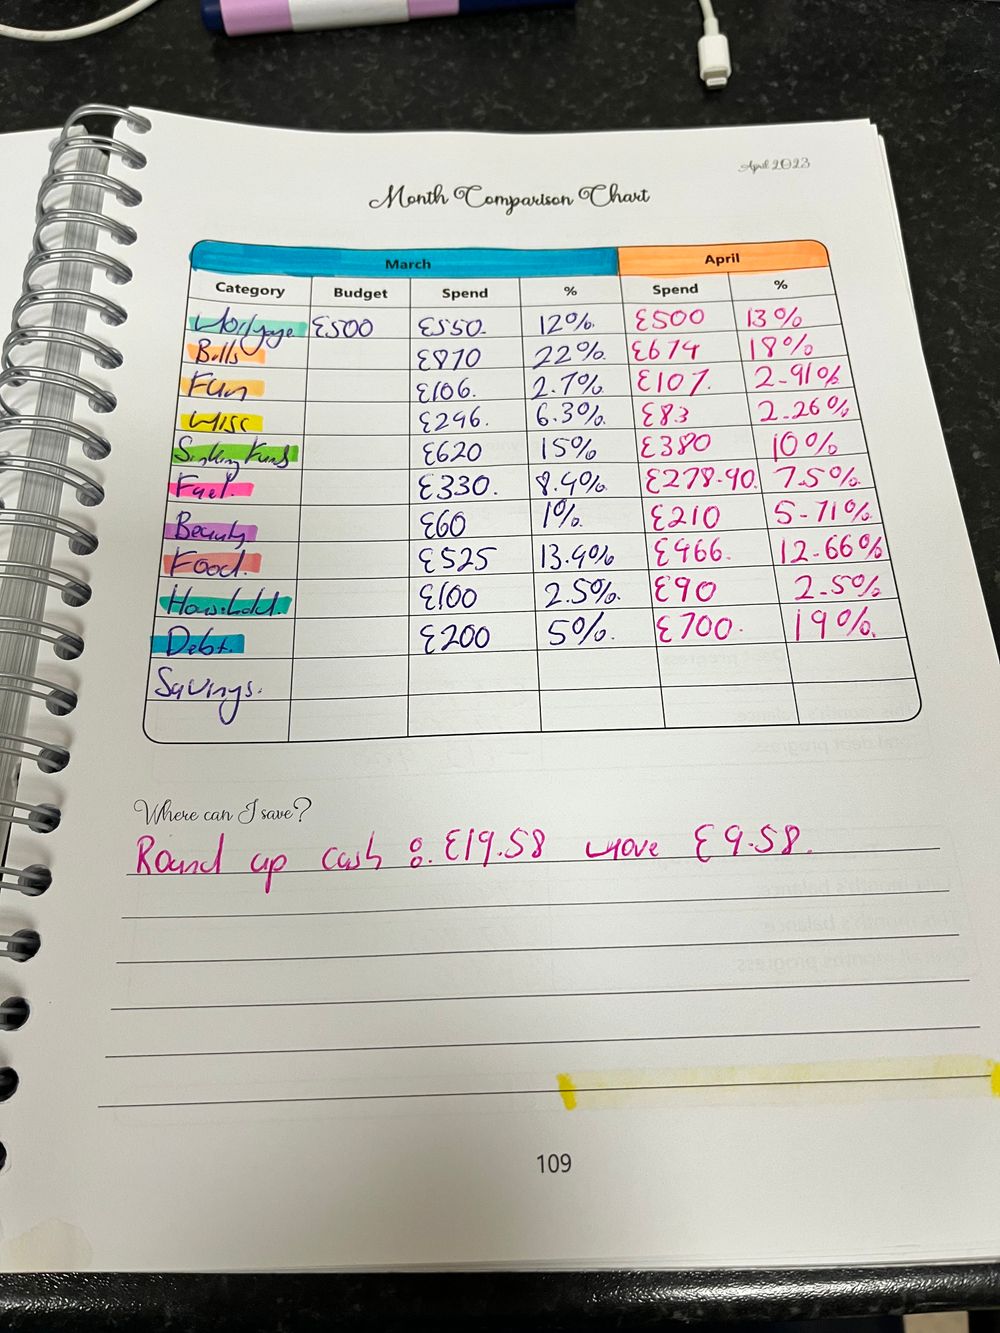 April 2023
Month Comparison Chart
March April
Category Budget Spend % Spend %
Mortgage £500 £550. 12%. £500 13%
Bills £870 22%. £674 18%
Fun £106. 2.7%. £107. 2.91%
Misc £296. 6.3%. £83 2.26%
Sinking Funds £620 15% £380 10%
Fuel. £330. 8.4%. £278.90. 7.5%.
Beauty £60 1%. £210 5.71%
Food. £525 13.4% £466. 12.66%
Household. £100 2.5%. £90 2.5%
Debt. £200 5%. £700. 19%.
Savings.
Where can I save?
Round up cash : £19.58 move £9.58.
109